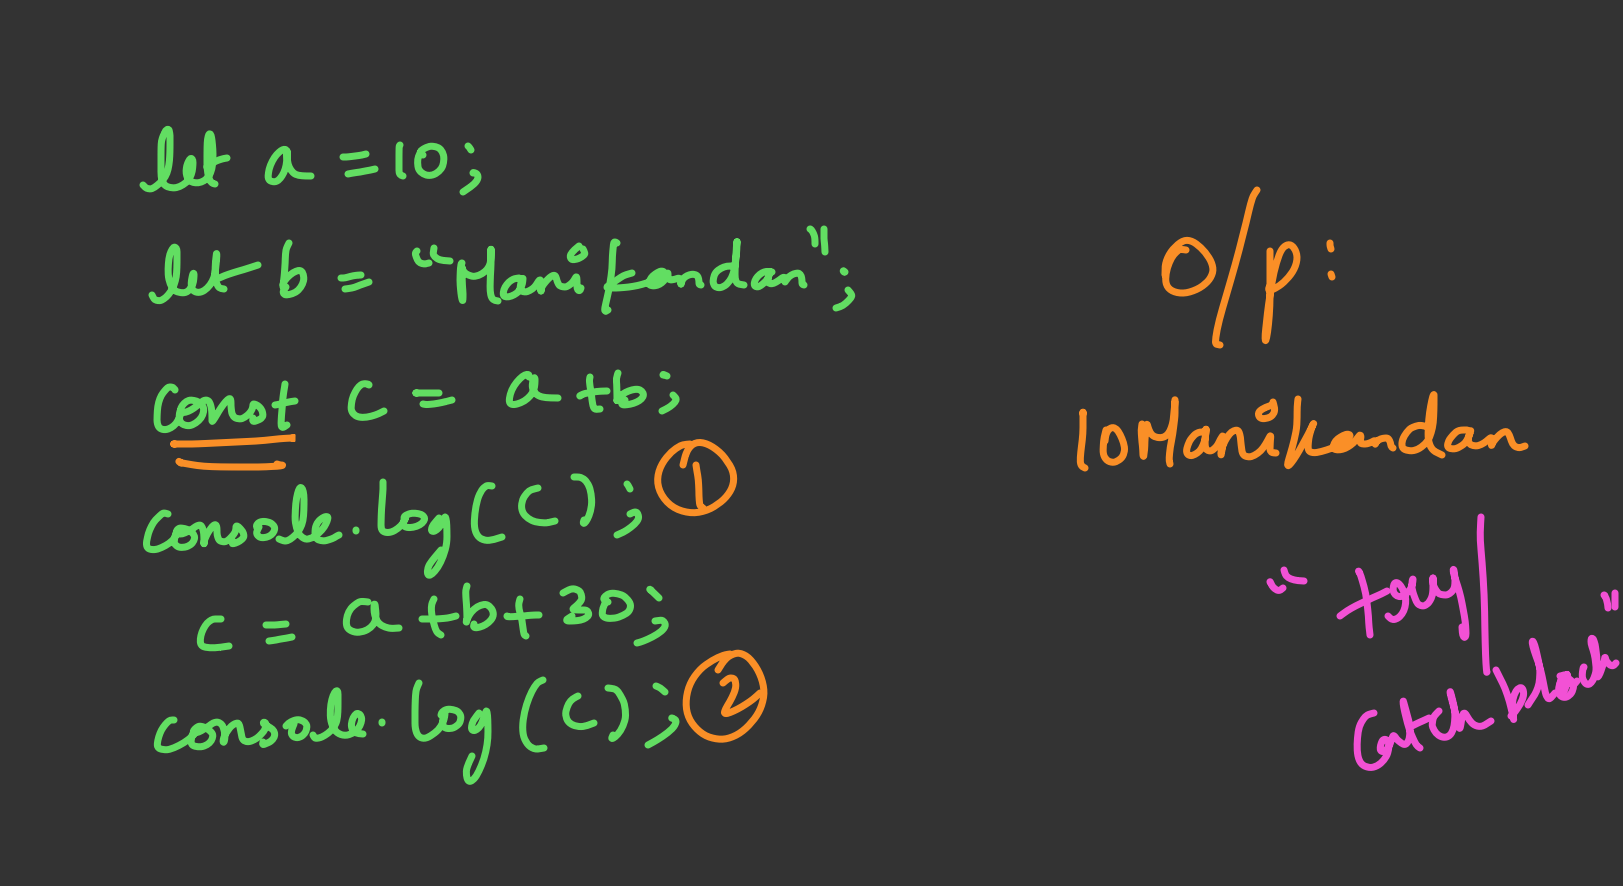 let a = 10;
let b = "Manikandan";
const c = a+b;
console.log(c); 1
c = a+b+30;
console.log(c); 2
O/p:
10Manikandan
"try/
catch block"